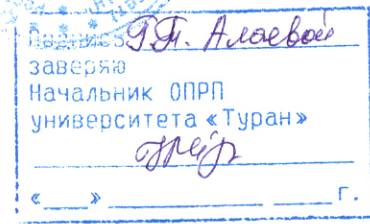 Подпись Г.П. Алаевой
заверяю
Начальник ОПРП
университета «Туран»
«___» ________ ____ г.